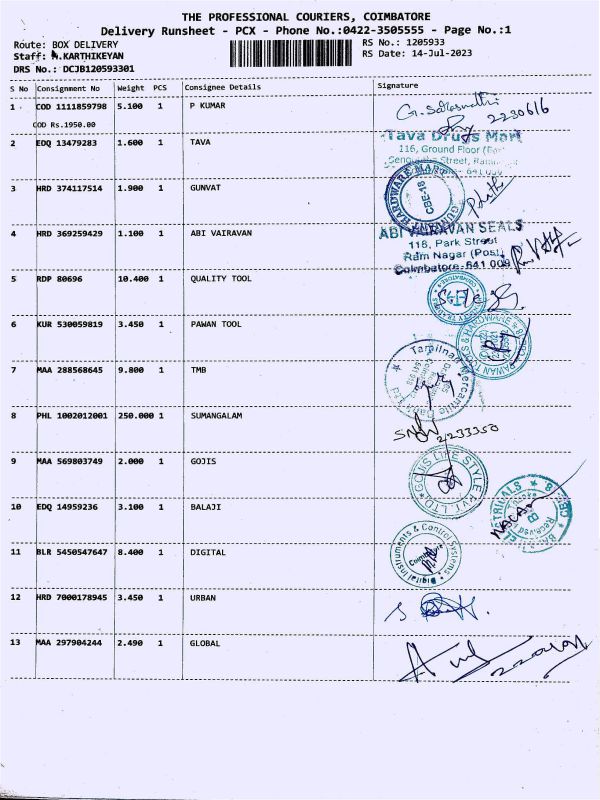 THE PROFESSIONAL COURIERS, COIMBATORE
Delivery Runsheet - PCX - Phone No.:0422-3505555 - Page No.:1
Route: BOX DELIVERY
RS No.: 1205933
Staff: N.KARTHIKEYAN
RS Date: 14-Jul-2023
DRS No.: DCJB120593301
S No Consignment No Weight PCS Consignee Details Signature
1 COD 1111859798 5.100 1 P KUMAR
COD Rs.1950.00
2230616
2 EDQ 13479283 1.600 1 TAVA
Tava Drugs Mart
116, Ground Floor
Street,
641 009
3 HRD 374117514 1.900 1 GUNVAT
HARDWARE MART
CBE-18
4 HRD 369259429 1.100 1 ABI VAIRAVAN
ABI VAIRAVAN SEALS
118, Park Street
Ram Nagar (Post)
Coimbatore-641 009
5 RDP 80696 10.400 1 QUALITY TOOL
6 KUR 530059819 3.450 1 PAWAN TOOL
PAWAN TOOLS & HARDWARE
7 MAA 288568645 9.800 1 TMB
Tamilnad Mercantile Bank Ltd
8 PHL 1002012001 250.000 1 SUMANGALAM
2233350
9 MAA 569803749 2.000 1 GOJIS
GOJIS LIFE STYLE PVT. LTD
10 EDQ 14959236 3.100 1 BALAJI
Received
11 BLR 5450547647 8.400 1 DIGITAL
Digital Instruments & Control Systems
Coimbatore
12 HRD 7000178945 3.450 1 URBAN
13 MAA 297904244 2.490 1 GLOBAL